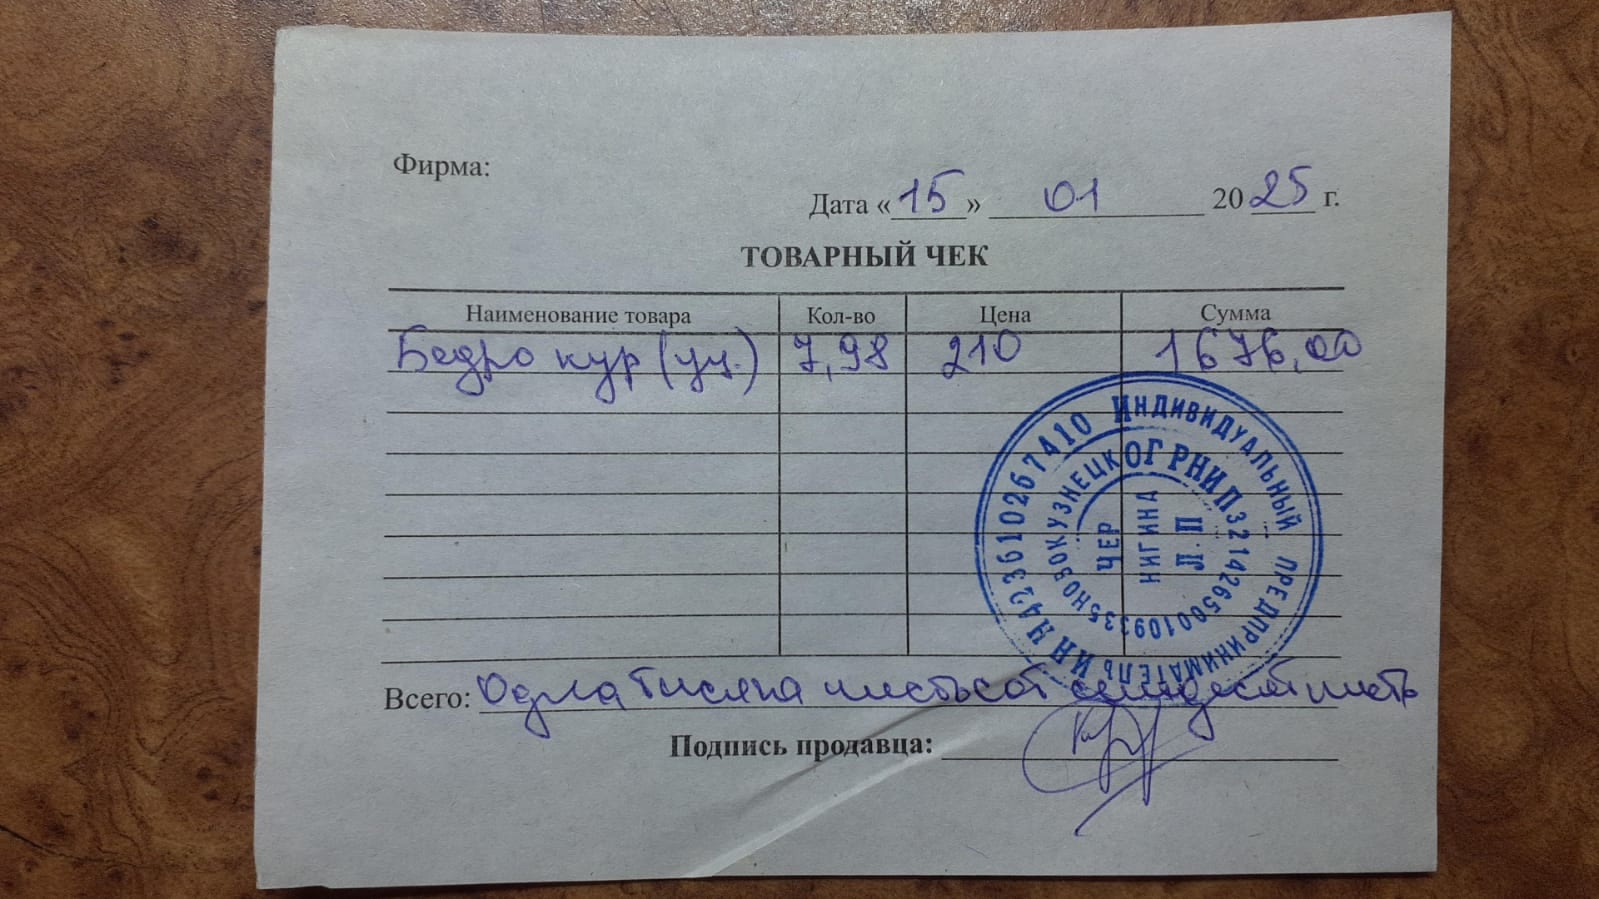 Фирма:
Дата «15» 01 2025 г.
ТОВАРНЫЙ ЧЕК
Наименование товара Кол-во Цена Сумма
Бедро кур (уц.) 7,98 210 1676,00
ИНДИВИДУАЛЬНЫЙ ПРЕДПРИНИМАТЕЛЬ
ИНН 423610267410
ОГРНИП 321426500109335
НОВОКУЗНЕЦК
ЧЕР
НИГИНА
Л.П
Всего: Одна тысяча шестьсот семьдесят шесть
Подпись продавца: